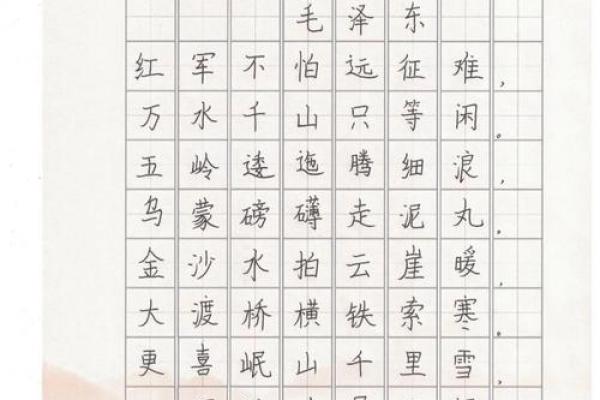 毛泽东
红军不怕远征难，
万水千山只等闲。
五岭逶迤腾细浪，
乌蒙磅礴走泥丸。
金沙水拍云崖暖，
大渡桥横铁索寒。
更喜岷山千里雪，